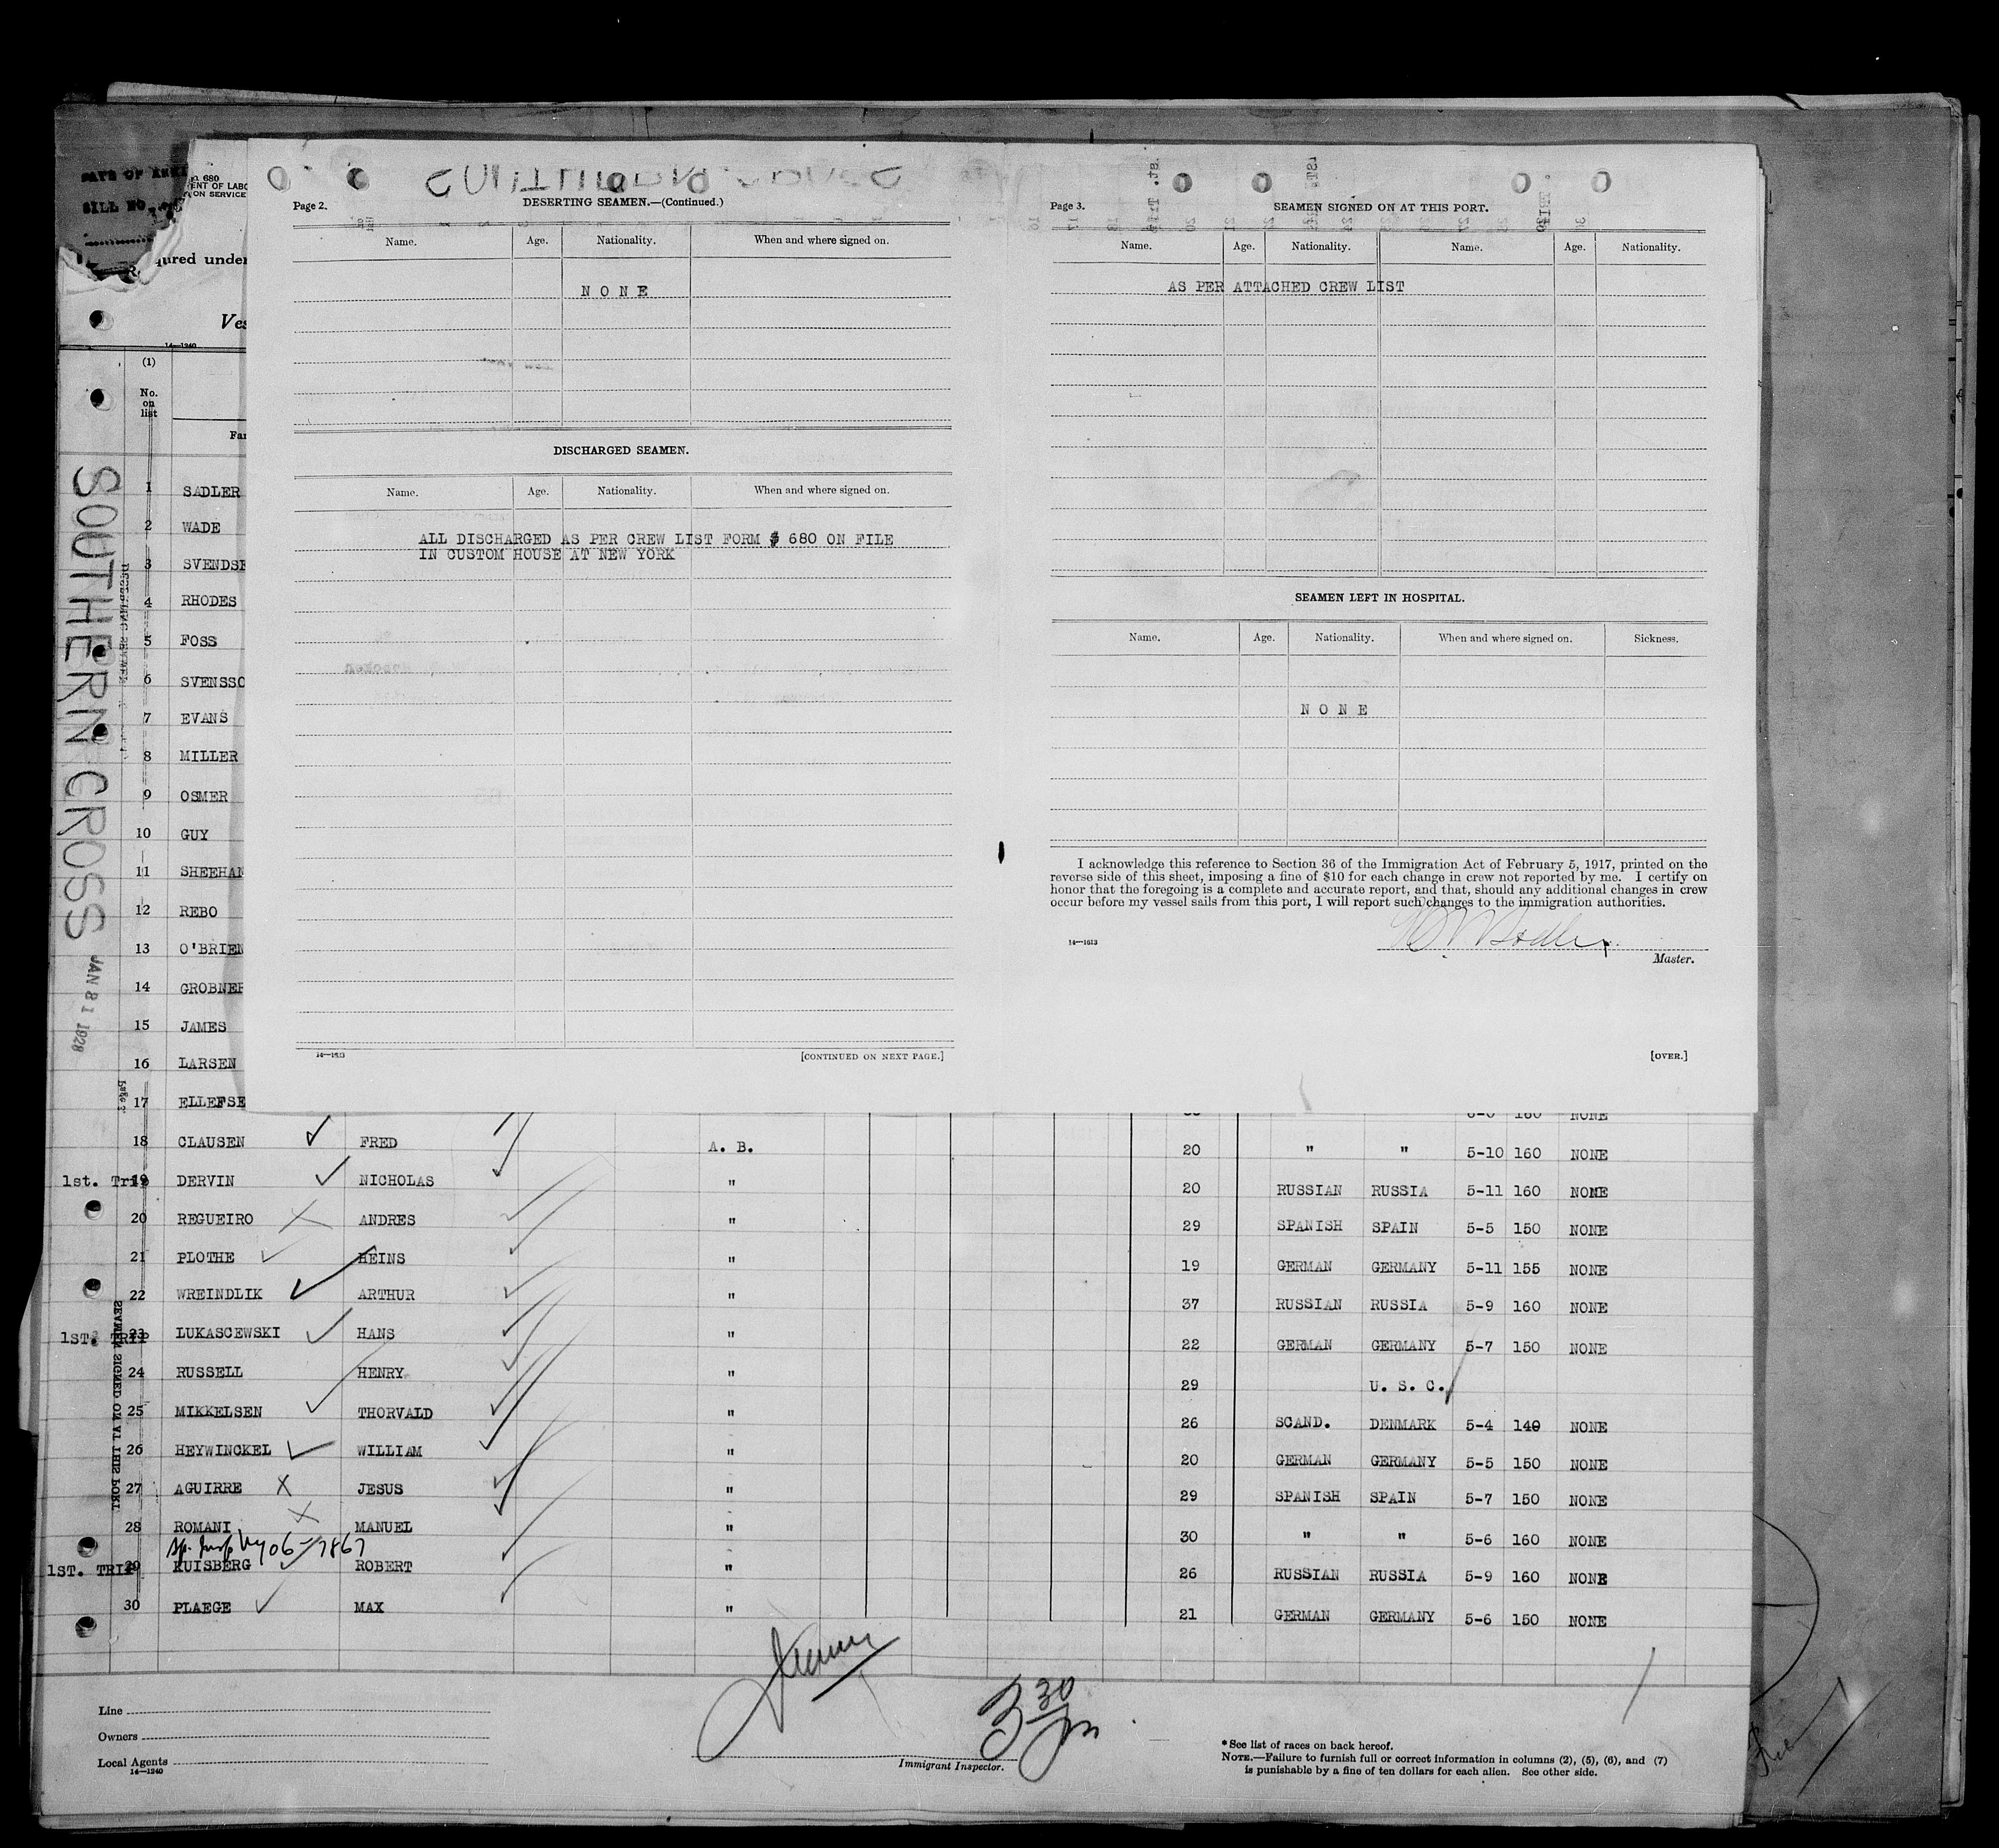 DATE OF
BILL NO.
680
ENT OF LABO
ON SERVICE
quired under
Ves
14—1240
(1)
No.
on
list
Fa
SOUTHERN CROSS
JAN 31 1928
1 SADLER
2 WADE
3 SVENDSE
4 RHODES
5 FOSS
6 SVENSSO
7 EVANS
8 MILLER
9 OSMER
10 GUY
11 SHEEHAN
12 REBO
13 O'BRIEN
14 GROBNER
15 JAMES
16 LARSEN
17 ELLEFSE
Page 2.
DESERTING SEAMEN.—(Continued.)
Name. Age. Nationality. When and where signed on.
N O N E
DISCHARGED SEAMEN.
Name. Age. Nationality. When and where signed on.
ALL DISCHARGED AS PER CREW LIST FORM # 680 ON FILE
IN CUSTOM HOUSE AT NEW YORK
14—1613
[CONTINUED ON NEXT PAGE.]
Page 3.
SEAMEN SIGNED ON AT THIS PORT.
Name. Age. Nationality. Name. Age. Nationality.
AS PER ATTACHED CREW LIST
SEAMEN LEFT IN HOSPITAL.
Name. Age. Nationality. When and where signed on. Sickness.
N O N E
I acknowledge this reference to Section 36 of the Immigration Act of February 5, 1917, printed on the
reverse side of this sheet, imposing a fine of $10 for each change in crew not reported by me. I certify on
honor that the foregoing is a complete and accurate report, and that, should any additional changes in crew
occur before my vessel sails from this port, I will report such changes to the immigration authorities.
14—1613
Master.
[OVER.]
6-0 160 NONE
18 CLAUSEN FRED A. B. 20 " " 5-10 160 NONE
1st. Trip 19 DERVIN NICHOLAS " 20 RUSSIAN RUSSIA 5-11 160 NONE
20 REGUEIRO ANDRES " 29 SPANISH SPAIN 5-5 150 NONE
21 PLOTHE HEINS " 19 GERMAN GERMANY 5-11 155 NONE
22 WREINDLIK ARTHUR " 37 RUSSIAN RUSSIA 5-9 160 NONE
1ST. TRIP 23 LUKASCEWSKI HANS " 22 GERMAN GERMANY 5-7 150 NONE
24 RUSSELL HENRY " 29 U. S. C.
25 MIKKELSEN THORVALD " 26 SCAND. DENMARK 5-4 140 NONE
26 HEYWINCKEL WILLIAM " 20 GERMAN GERMANY 5-5 150 NONE
27 AGUIRRE JESUS " 29 SPANISH SPAIN 5-7 150 NONE
28 ROMANI MANUEL " 30 " " 5-6 160 NONE
1ST. TRIP 29 KUISBERG ROBERT " 26 RUSSIAN RUSSIA 5-9 160 NONE
30 PLAEGE MAX " 21 GERMAN GERMANY 5-6 150 NONE
SEAMEN SIGNED ON AT THIS PORT.
3 30
Line
Owners
Local Agents
14—1240
Immigrant Inspector.
*See list of races on back hereof.
NOTE.—Failure to furnish full or correct information in columns (2), (5), (6), and (7)
is punishable by a fine of ten dollars for each alien. See other side.